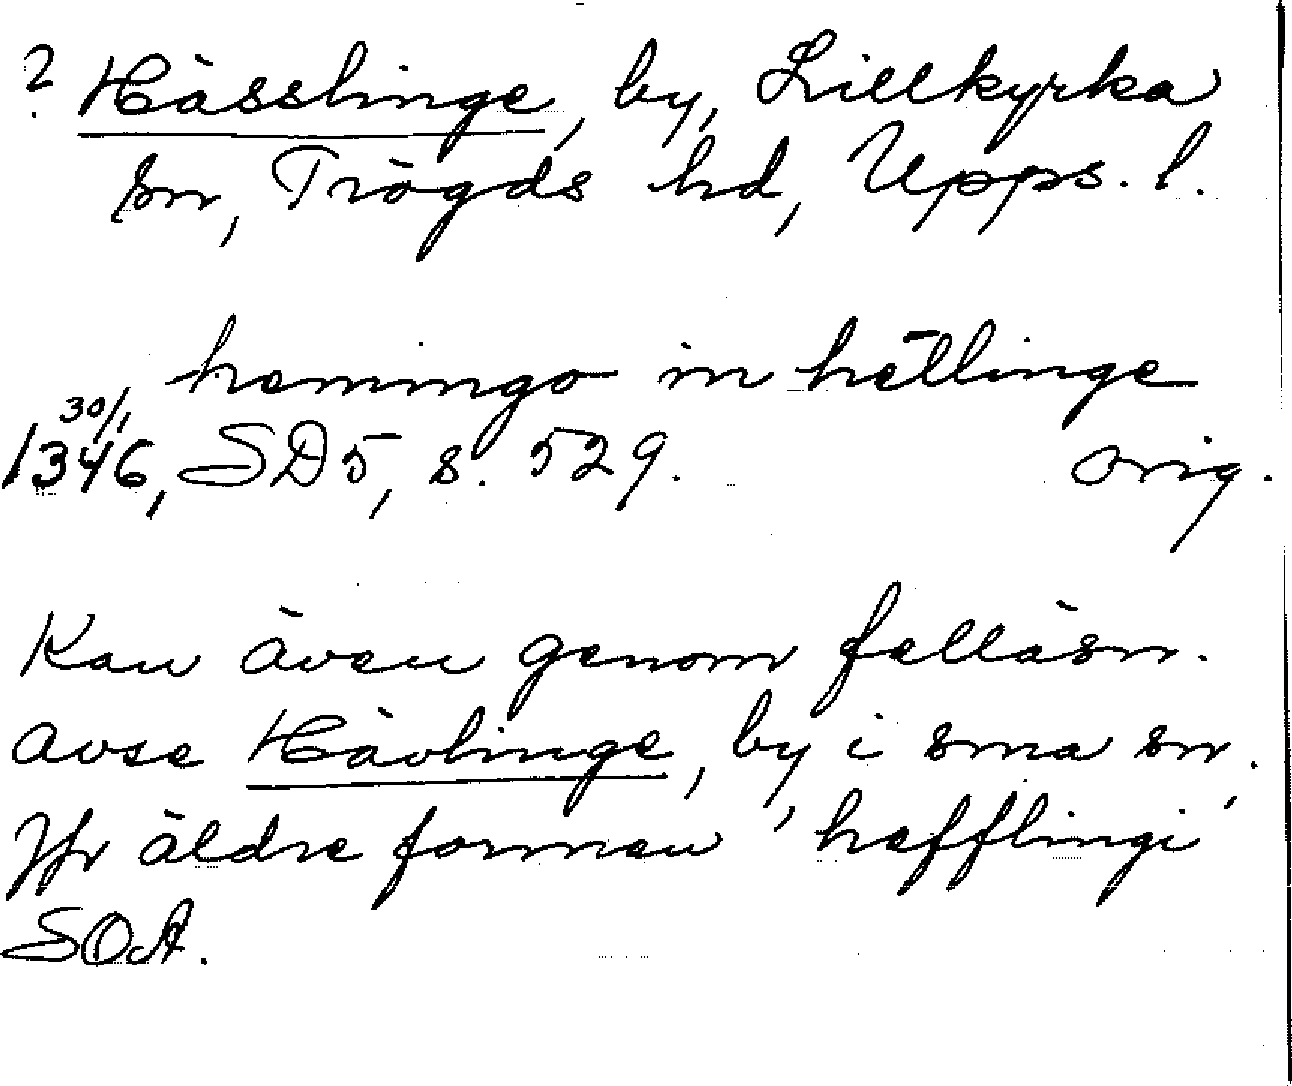 ? Hässlinge, by, Lillkyrka
sn, Trögds hd, Upps. l.
hemingo in hetlinge
30/1
1346, SD5, s. 529. orig.
Kan även genom felläsn.
avse Hävlinge, by i sma sn.
Jfr äldre formen 'hefflingi'
SOA.